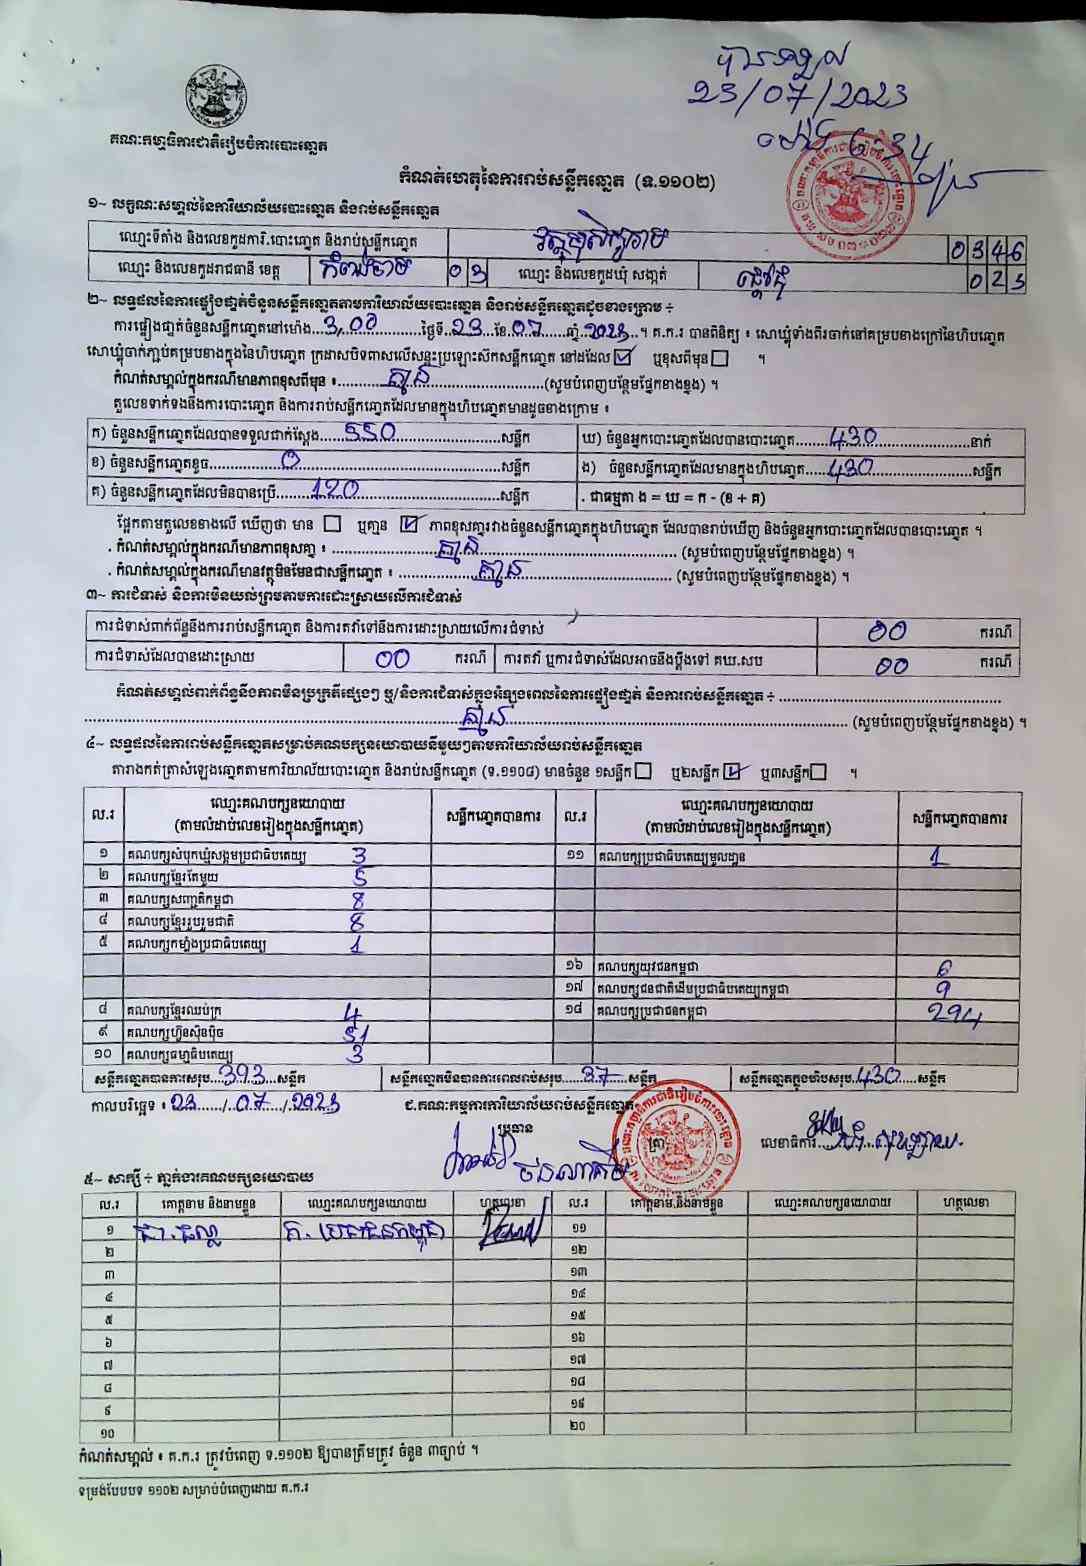 23/07/2023
គណៈកម្មាធិការជាតិរៀបចំការបោះឆ្នោត
កំណត់ហេតុនៃការរាប់សន្លឹកឆ្នោត (ទ.១១០២)
១~ លក្ខណៈសម្គាល់នៃការិយាល័យបោះឆ្នោត និងរាប់សន្លឹកឆ្នោត
ឈ្មោះទីតាំង និងលេខកូដការិ.បោះឆ្នោត និងរាប់សន្លឹកឆ្នោត 0346
ឈ្មោះ និងលេខកូដរាជធានី ខេត្ត កំពង់ចាម 03 ឈ្មោះ និងលេខកូដឃុំ សង្កាត់ 023
២~ លទ្ធផលនៃការផ្ទៀងផ្ទាត់ចំនួនសន្លឹកឆ្នោតតាមការិយាល័យបោះឆ្នោត និងរាប់សន្លឹកឆ្នោតដូចខាងក្រោម ÷
ការផ្ទៀងផ្ទាត់ចំនួនសន្លឹកឆ្នោតនៅម៉ោង...3,00...ថ្ងៃទី..23..ខែ.07...ឆ្នាំ..2023..។ គ.ក.រ បានពិនិត្យ ៖ សោឃ្មុំទាំងពីរចាក់នៅគម្របខាងក្រៅនៃហិបឆ្នោត
សោឃ្មុំចាក់ភ្ជាប់គម្របខាងក្នុងនៃហិបឆ្នោត ក្រដាសបិទពាសលើសន្ទះប្រឡោះសឹកសន្លឹកឆ្នោត នៅដដែល ☑ ឬខុសពីមុន ☐ ។
កំណត់សម្គាល់ក្នុងករណីមានភាពខុសពីមុន ៖...គ្មាន...(សូមបំពេញបន្ថែមផ្នែកខាងខ្នង) ។
តួលេខទាក់ទងនឹងការបោះឆ្នោត និងការរាប់សន្លឹកឆ្នោតដែលមានក្នុងហិបឆ្នោតមានដូចខាងក្រោម ៖
ក) ចំនួនសន្លឹកឆ្នោតដែលបានទទួលជាក់ស្តែង...550...សន្លឹក ឃ) ចំនួនអ្នកបោះឆ្នោតដែលបានបោះឆ្នោត...430...នាក់
ខ) ចំនួនសន្លឹកឆ្នោតខូច...0...សន្លឹក ង) ចំនួនសន្លឹកឆ្នោតដែលមានក្នុងហិបឆ្នោត...430...សន្លឹក
គ) ចំនួនសន្លឹកឆ្នោតដែលមិនបានប្រើ...120...សន្លឹក . ជាធម្មតា ង = ឃ = ក - (ខ + គ)
ផ្អែកតាមតួលេខខាងលើ ឃើញថា មាន ☐ ឬគ្មាន ☑ ភាពខុសគ្នារវាងចំនួនសន្លឹកឆ្នោតក្នុងហិបឆ្នោត ដែលបានរាប់ឃើញ និងចំនួនអ្នកបោះឆ្នោតដែលបានបោះឆ្នោត ។
. កំណត់សម្គាល់ក្នុងករណីមានភាពខុសគ្នា ៖ ...គ្មាន... (សូមបំពេញបន្ថែមផ្នែកខាងខ្នង) ។
. កំណត់សម្គាល់ក្នុងករណីមានវត្ថុមិនមែនជាសន្លឹកឆ្នោត ៖ ...គ្មាន... (សូមបំពេញបន្ថែមផ្នែកខាងខ្នង) ។
៣~ ការជំទាស់ និងការមិនយល់ព្រមតាមការដោះស្រាយលើការជំទាស់
ការជំទាស់ពាក់ព័ន្ធនឹងការរាប់សន្លឹកឆ្នោត និងការតវ៉ាទៅនឹងការដោះស្រាយលើការជំទាស់ 00 ករណី
ការជំទាស់ដែលបានដោះស្រាយ 00 ករណី ការតវ៉ា ឬការជំទាស់ដែលអាចនឹងប្តឹងទៅ គឃ.សប 00 ករណី
កំណត់សម្គាល់ពាក់ព័ន្ធនឹងភាពមិនប្រក្រតីផ្សេងៗ ឬ/និងការជំទាស់ក្នុងអំឡុងពេលនៃការផ្ទៀងផ្ទាត់ និងការរាប់សន្លឹកឆ្នោត ÷ ...
...គ្មាន... (សូមបំពេញបន្ថែមផ្នែកខាងខ្នង) ។
៤~ លទ្ធផលនៃការរាប់សន្លឹកឆ្នោតសម្រាប់គណបក្សនយោបាយនីមួយៗតាមការិយាល័យរាប់សន្លឹកឆ្នោត
តារាងកត់ត្រាសំឡេងឆ្នោតតាមការិយាល័យបោះឆ្នោត និងរាប់សន្លឹកឆ្នោត (ទ.១១០៨) មានចំនួន ១សន្លឹក ☐ ឬ២សន្លឹក ☑ ឬ៣សន្លឹក ☐ ។
ល.រ ឈ្មោះគណបក្សនយោបាយ (តាមលំដាប់លេខរៀងក្នុងសន្លឹកឆ្នោត) សន្លឹកឆ្នោតបានការ ល.រ ឈ្មោះគណបក្សនយោបាយ (តាមលំដាប់លេខរៀងក្នុងសន្លឹកឆ្នោត) សន្លឹកឆ្នោតបានការ
១ គណបក្សសំបុកឃ្មុំសង្គមប្រជាធិបតេយ្យ 3 ១១ គណបក្សប្រជាធិបតេយ្យមូលដ្ឋាន 1
២ គណបក្សខ្មែរតែមួយ 5
៣ គណបក្សសញ្ជាតិកម្ពុជា 8
៤ គណបក្សខ្មែររួបរួមជាតិ 8
៥ គណបក្សកម្លាំងប្រជាធិបតេយ្យ 1
១៦ គណបក្សយុវជនកម្ពុជា 6
១៧ គណបក្សជនជាតិដើមប្រជាធិបតេយ្យកម្ពុជា 9
៨ គណបក្សខ្មែរឈប់ក្រ 4 ១៨ គណបក្សប្រជាជនកម្ពុជា 294
៩ គណបក្សហ្វ៊ុនស៊ិនប៉ិច 51
១០ គណបក្សធម្មាធិបតេយ្យ 3
សន្លឹកឆ្នោតបានការសរុប..393...សន្លឹក សន្លឹកឆ្នោតមិនបានការពេលរាប់សរុប...37...សន្លឹក សន្លឹកឆ្នោតក្នុងហិបសរុប.430...សន្លឹក
កាលបរិច្ឆេទ ៖ 23...../.07..../.2023 ជ.គណៈកម្មការការិយាល័យរាប់សន្លឹកឆ្នោត
ប្រធាន (ត្រា) លេខាធិការ
៥~ សាក្សី ÷ ភ្នាក់ងារគណបក្សនយោបាយ
ល.រ គោត្តនាម និងនាមខ្លួន ឈ្មោះគណបក្សនយោបាយ ហត្ថលេខា ល.រ គោត្តនាម និងនាមខ្លួន ឈ្មោះគណបក្សនយោបាយ ហត្ថលេខា
១ គ. ប្រជាជនកម្ពុជា ១១
២ ១២
៣ ១៣
៤ ១៤
៥ ១៥
៦ ១៦
៧ ១៧
៨ ១៨
៩ ១៩
១០ ២០
កំណត់សម្គាល់ ៖ គ.ក.រ ត្រូវបំពេញ ទ.១១០២ ឱ្យបានត្រឹមត្រូវ ចំនួន ៣ច្បាប់ ។
ទម្រង់បែបបទ ១១០២ សម្រាប់បំពេញដោយ គ.ក.រ